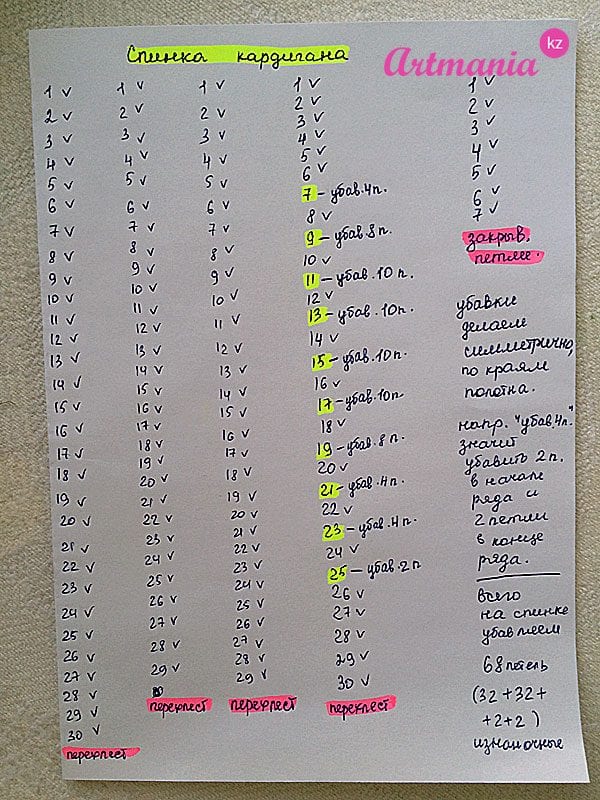 Спинка кардигана
Artmania kz
1 ✓
2 ✓
3 ✓
4 ✓
5 ✓
6 ✓
7 ✓
8 ✓
9 ✓
10 ✓
11 ✓
12 ✓
13 ✓
14 ✓
15 ✓
16 ✓
17 ✓
18 ✓
19 ✓
20 ✓
21 ✓
22 ✓
23 ✓
24 ✓
25 ✓
26 ✓
27 ✓
28 ✓
29 ✓
30 ✓
перехлест
1 ✓
2 ✓
3 ✓
4 ✓
5 ✓
6 ✓
7 ✓
8 ✓
9 ✓
10 ✓
11 ✓
12 ✓
13 ✓
14 ✓
15 ✓
16 ✓
17 ✓
18 ✓
19 ✓
20 ✓
21 ✓
22 ✓
23 ✓
24 ✓
25 ✓
26 ✓
27 ✓
28 ✓
29 ✓
перехлест
1 ✓
2 ✓
3 ✓
4 ✓
5 ✓
6 ✓
7 ✓
8 ✓
9 ✓
10 ✓
11 ✓
12 ✓
13 ✓
14 ✓
15 ✓
16 ✓
17 ✓
18 ✓
19 ✓
20 ✓
21 ✓
22 ✓
23 ✓
24 ✓
25 ✓
26 ✓
27 ✓
28 ✓
29 ✓
перехлест
1 ✓
2 ✓
3 ✓
4 ✓
5 ✓
6 ✓
7 - убав. 4п.
8 ✓
9 - убав. 8 п.
10 ✓
11 - убав. 10 п.
12 ✓
13 - убав. 10п.
14 ✓
15 - убав. 10п.
16 ✓
17 - убав. 10п.
18 ✓
19 - убав. 8 п.
20 ✓
21 - убав. 4п.
22 ✓
23 - убав. 4 п.
24 ✓
25 - убав. 2 п
26 ✓
27 ✓
28 ✓
29 ✓
30 ✓
перехлест
1 ✓
2 ✓
3 ✓
4 ✓
5 ✓
6 ✓
7 ✓
закрыв.
петли.
убавки
делаем
симметрично,
по краям
полотна.
напр. "убав. 4п."
значит
убавить 2 п.
в начале
ряда и
2 петли
в конце
ряда.
всего
на спинке
убавляем
68 петель
(32 + 32 +
+ 2 + 2)
изнаночные